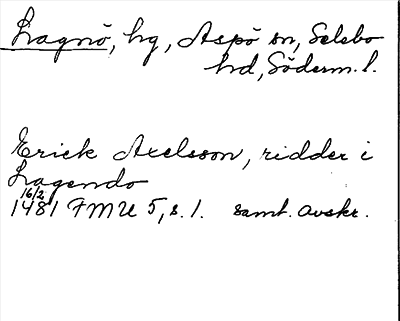 Lagnö, hg, Aspö sn, Selebo
hd, Söderm. l.
Erick Axelsson, ridder i
Lagendo
16/2
1481 FMU 5, s. 1. samt. avskr.